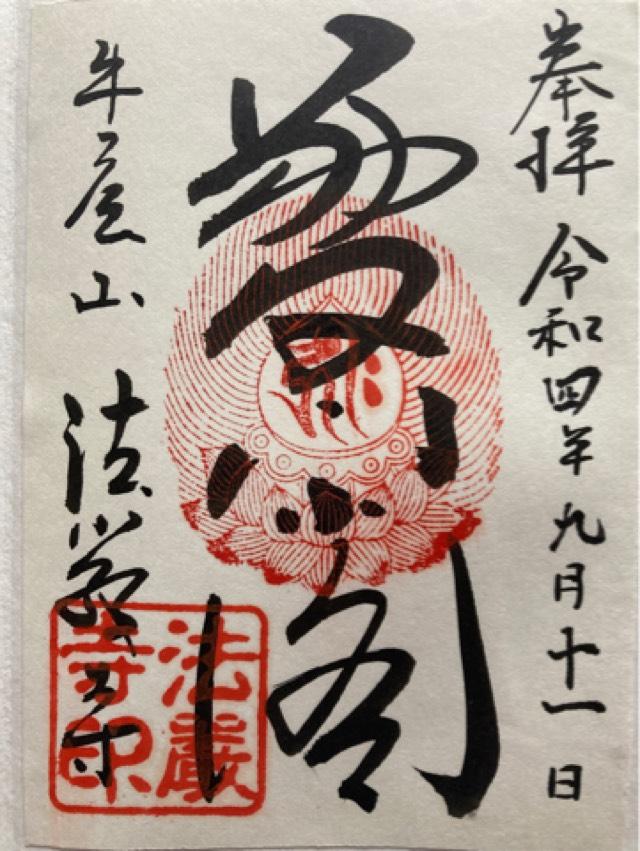 奉拝 令和四年九月十一日
閣
牛尾山 法嚴寺
法嚴
寺印